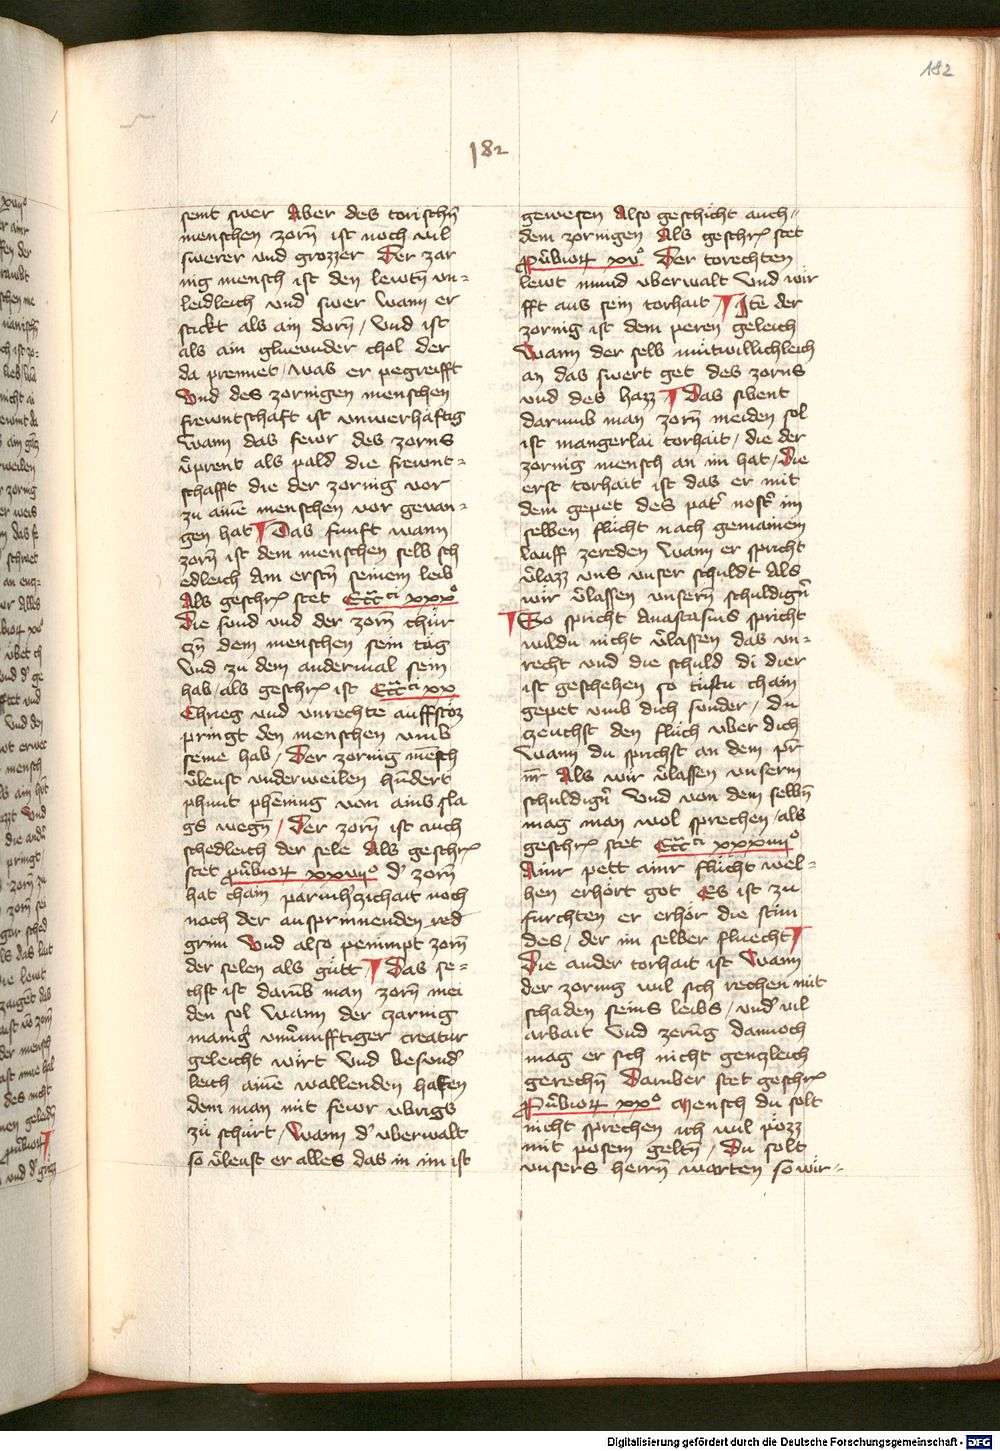 182
182
semt swer Aber des torischn̄
menschen zorn̄ ist noch vil
swerer vnd grozzer Der zor
nig mensch ist den lewtn̄ vn=
leidleich vnd swer wann er
stickt als ain dorn̄ / vnd ist
als ain gluewnder chol der
da prennet / was er pegreifft
Vnd des zornigen menschen
frewntschaft ist vnwerhaftig
wann das fewr des zorns
v̄prent als pald die frewnt=
schafft die der zornig vor
zu aim̄e menschen vor gewan=
gen hat ¶ Das funft wann
zorn̄ ist dem menschen selb sch
edleich Am erstn̄ seinem leib
Als geschrͥ stet Ecc̄cͥ xxxº
Die sund vnd der zorn̄ chür
zn̄ dem menschen sein täg
Vnd zu dem andermal sein
hab / als geschrͥ ist Ecc̄cͥ xx
Chrieg vnd vnrechte auffstöz
pringt den menschen vmb
seine hab / Der zornig mēsch
v̄leust vnderweilen hundert
phunt phening von ains sla
gs wegn̄ / Der zorn̄ ist auch
schedleich der sele Als geschrͥ
stet pūbiorꝝ xxviiº d' zorn̄
hat chain parmh'zichait noch
noch der ausprinnenden red
grim Vnd also penimpt zorn̄
der selen als gütt ¶ Das se=
chst ist darūb man zorn̄ mei
den sol wann der zornig
manig' vnu'nufftiger creatur
geleicht wirt vnd besund'
leich aim̄e wallenden hafen
dem man mit fewr vbrigs
zü schürt / wann d' vberwalt
so v̄leust er alles das in im ist
gewesen Also geschicht auch
dem zornigen Als geschrͥ stet
pūbiorꝝ xvº Der torechten
lewt mund vberwalt vnd wir
fft aus sein torhait ¶ Itē der
zornig ist dem peren geleich
Wann der selb mütwillichleich
an das swert get des zorns
vnd des hazz ¶ Das sibent
darumb man zorn̄ meiden sol
ist mangerlai torhait / die der
zornig mensch an im hat / Die
erst torhait ist das er mit
dem gepet des pat' nost' im
selben flücht nach gemainem
lauff zereden wann er spricht
v̄lazz vns vnser schuldt Als
wir v̄lassen vnsern̄ schuldign̄
¶ So spricht Anastasius spricht
wildu nicht v̄lassen das vn=
recht vnd die schuld di dier
ist geschehen so tüstu chain
gepet vmb dich sunder / du
zeuchst den flüch vber dich
Wann du sprichst an dem pr̄
nr̄ Als wir v̄lassen vnserm
schuldign̄ vnd von dem selbn̄
mag man wol sprechen / als
geschrͥ stet Ecc̄cͥ xxxiiiiº
Ainr pett ainr flücht wel=
hen erhört got Es ist zu
fürchten er erhör die stim
des / der im selber fluecht ¶
Die ander torhait ist wann
der zornig wil sich rechen mit
schaden seins leibs / vnd' vil
arbait vnd zerūg dannoch
mag er sich nicht genczleich
gerechn̄ Daruber stet geschrͥ
Pūbiorꝝ xxº Mensch du solt
nicht sprechen ich wil pözz
mit posem geltn̄ / Du solt
vnsers herrn̄ warten so wir=
Digitalisierung gefördert durch die Deutsche Forschungsgemeinschaft - DFG